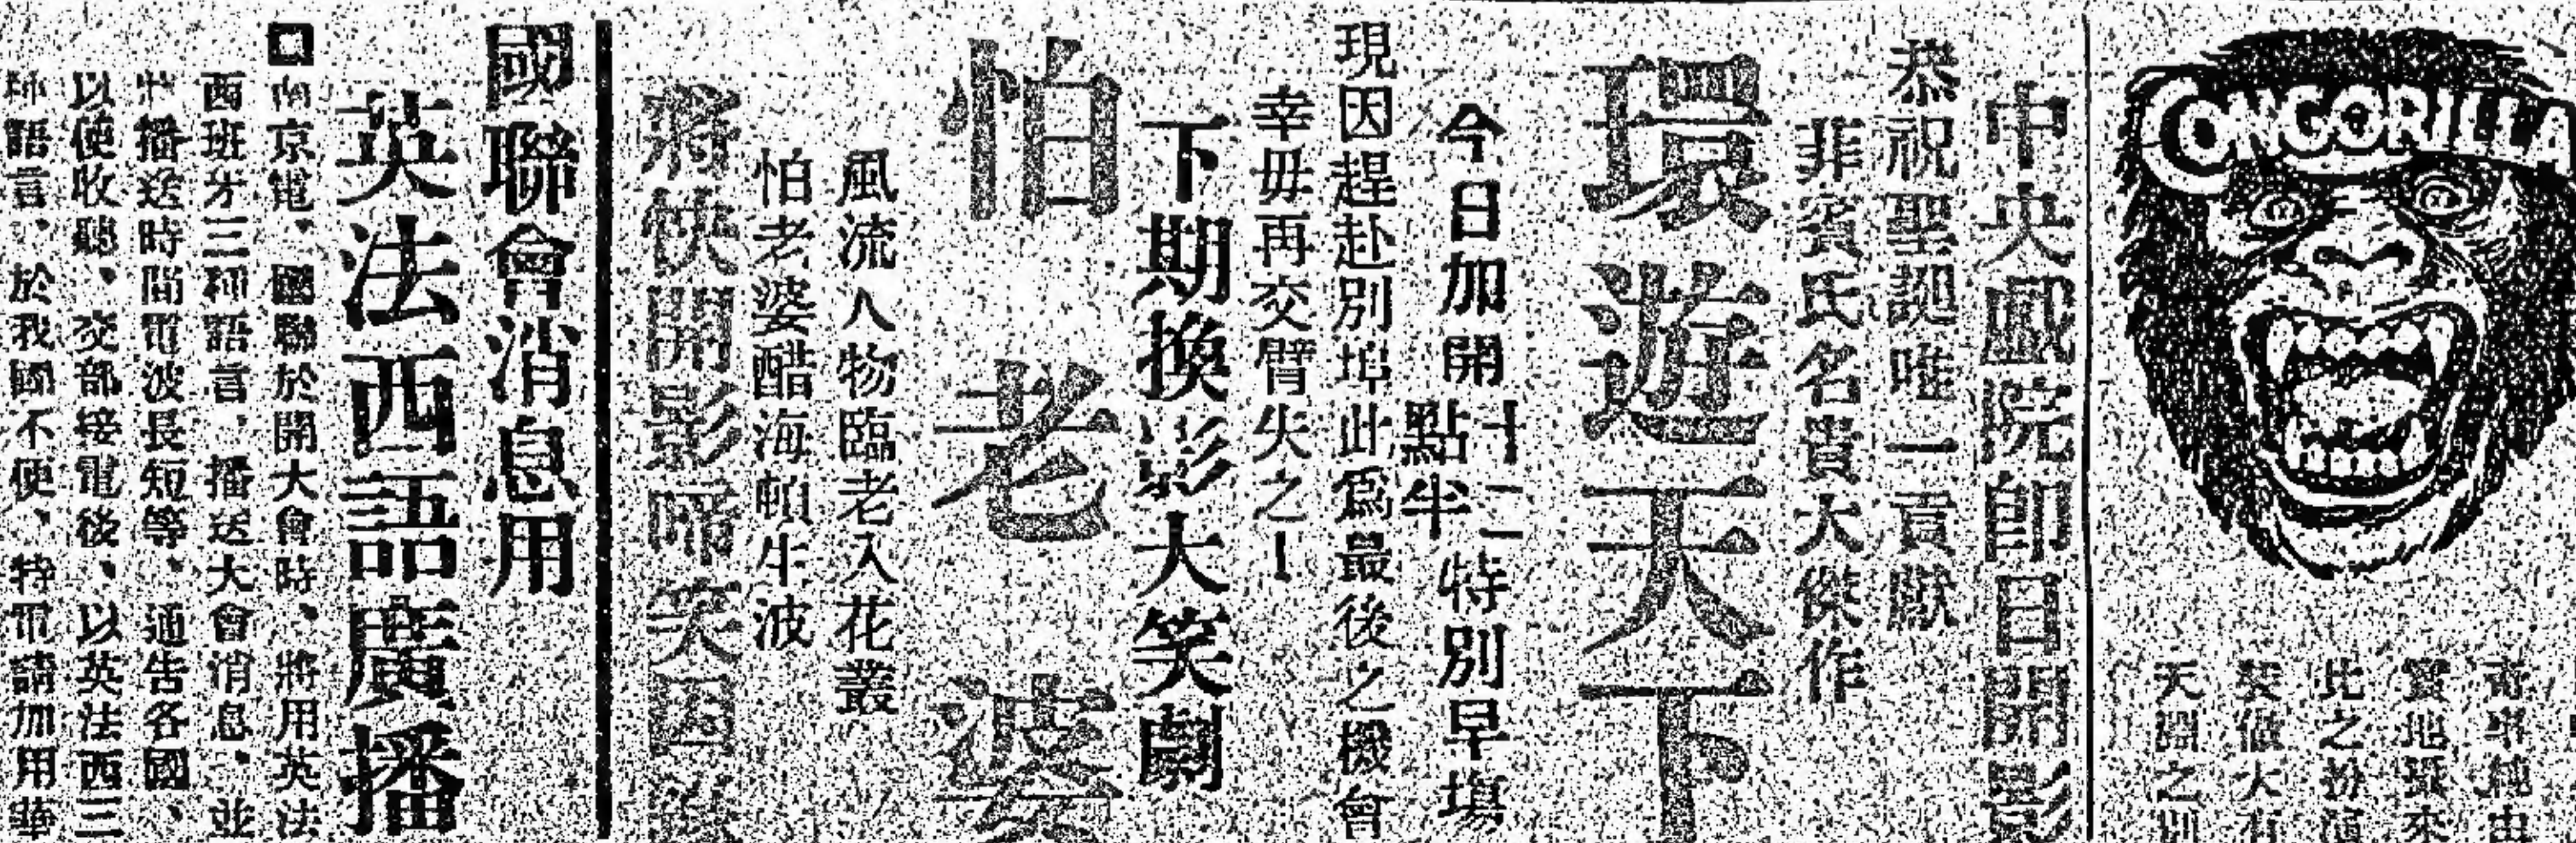 CONGORILLA
比之扮演
天淵之別
中央戲院即日開影
恭祝聖誕唯一貢獻
菲賓氏名貴大傑作
環遊天下
今日加開十二點半特別早場
現因趕赴別埠此爲最後之機會
幸毋再交臂失之!
下期換影大笑劇
怕老婆
風流人物臨老入花叢
怕老婆醋海頓生波
將快開影啼笑因
國聯會消息用
英法西語廣播
南京電、國聯於開大會時、將用英法
西班牙三種語言、播送大會消息、並
播送時間電波長短等、通告各國、
以便收聽、交部接電後、以英法西三
種語言、於我國不便、特電請加用華